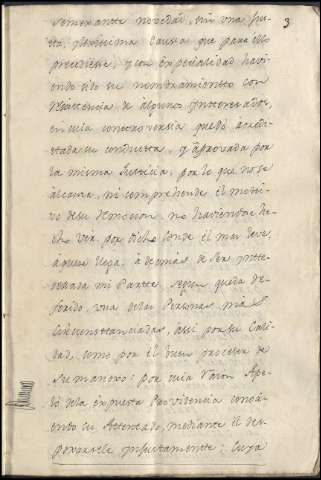 3
semexante novedad, sin una jus-
ta, y lexitima causa que para ello
precediese, y con especialidad havi-
endo sido su nombramiento con
resistencia de algunos Ynteresados,
en cuia controversia quedó acredi-
tada su conducta, y aprovada por
la misma Justicia, por lo que no se
alcanza, ni comprehende el moti-
vo de su Remocion, no haviendose he-
cho ver por dicho Conde el mas leve,
á que se llega, á demas de ser inte-
resada mi Parte, segun queda re-
ferido, una de las Personas mas
circunstanciadas, assi por su Cali-
dad, como por el buen proceder de
su manexo: por cuia razon Ape-
ló de la expuesta Providencia
en to su Atentado, mediante el des-
pojarsele injustamente: Cuya